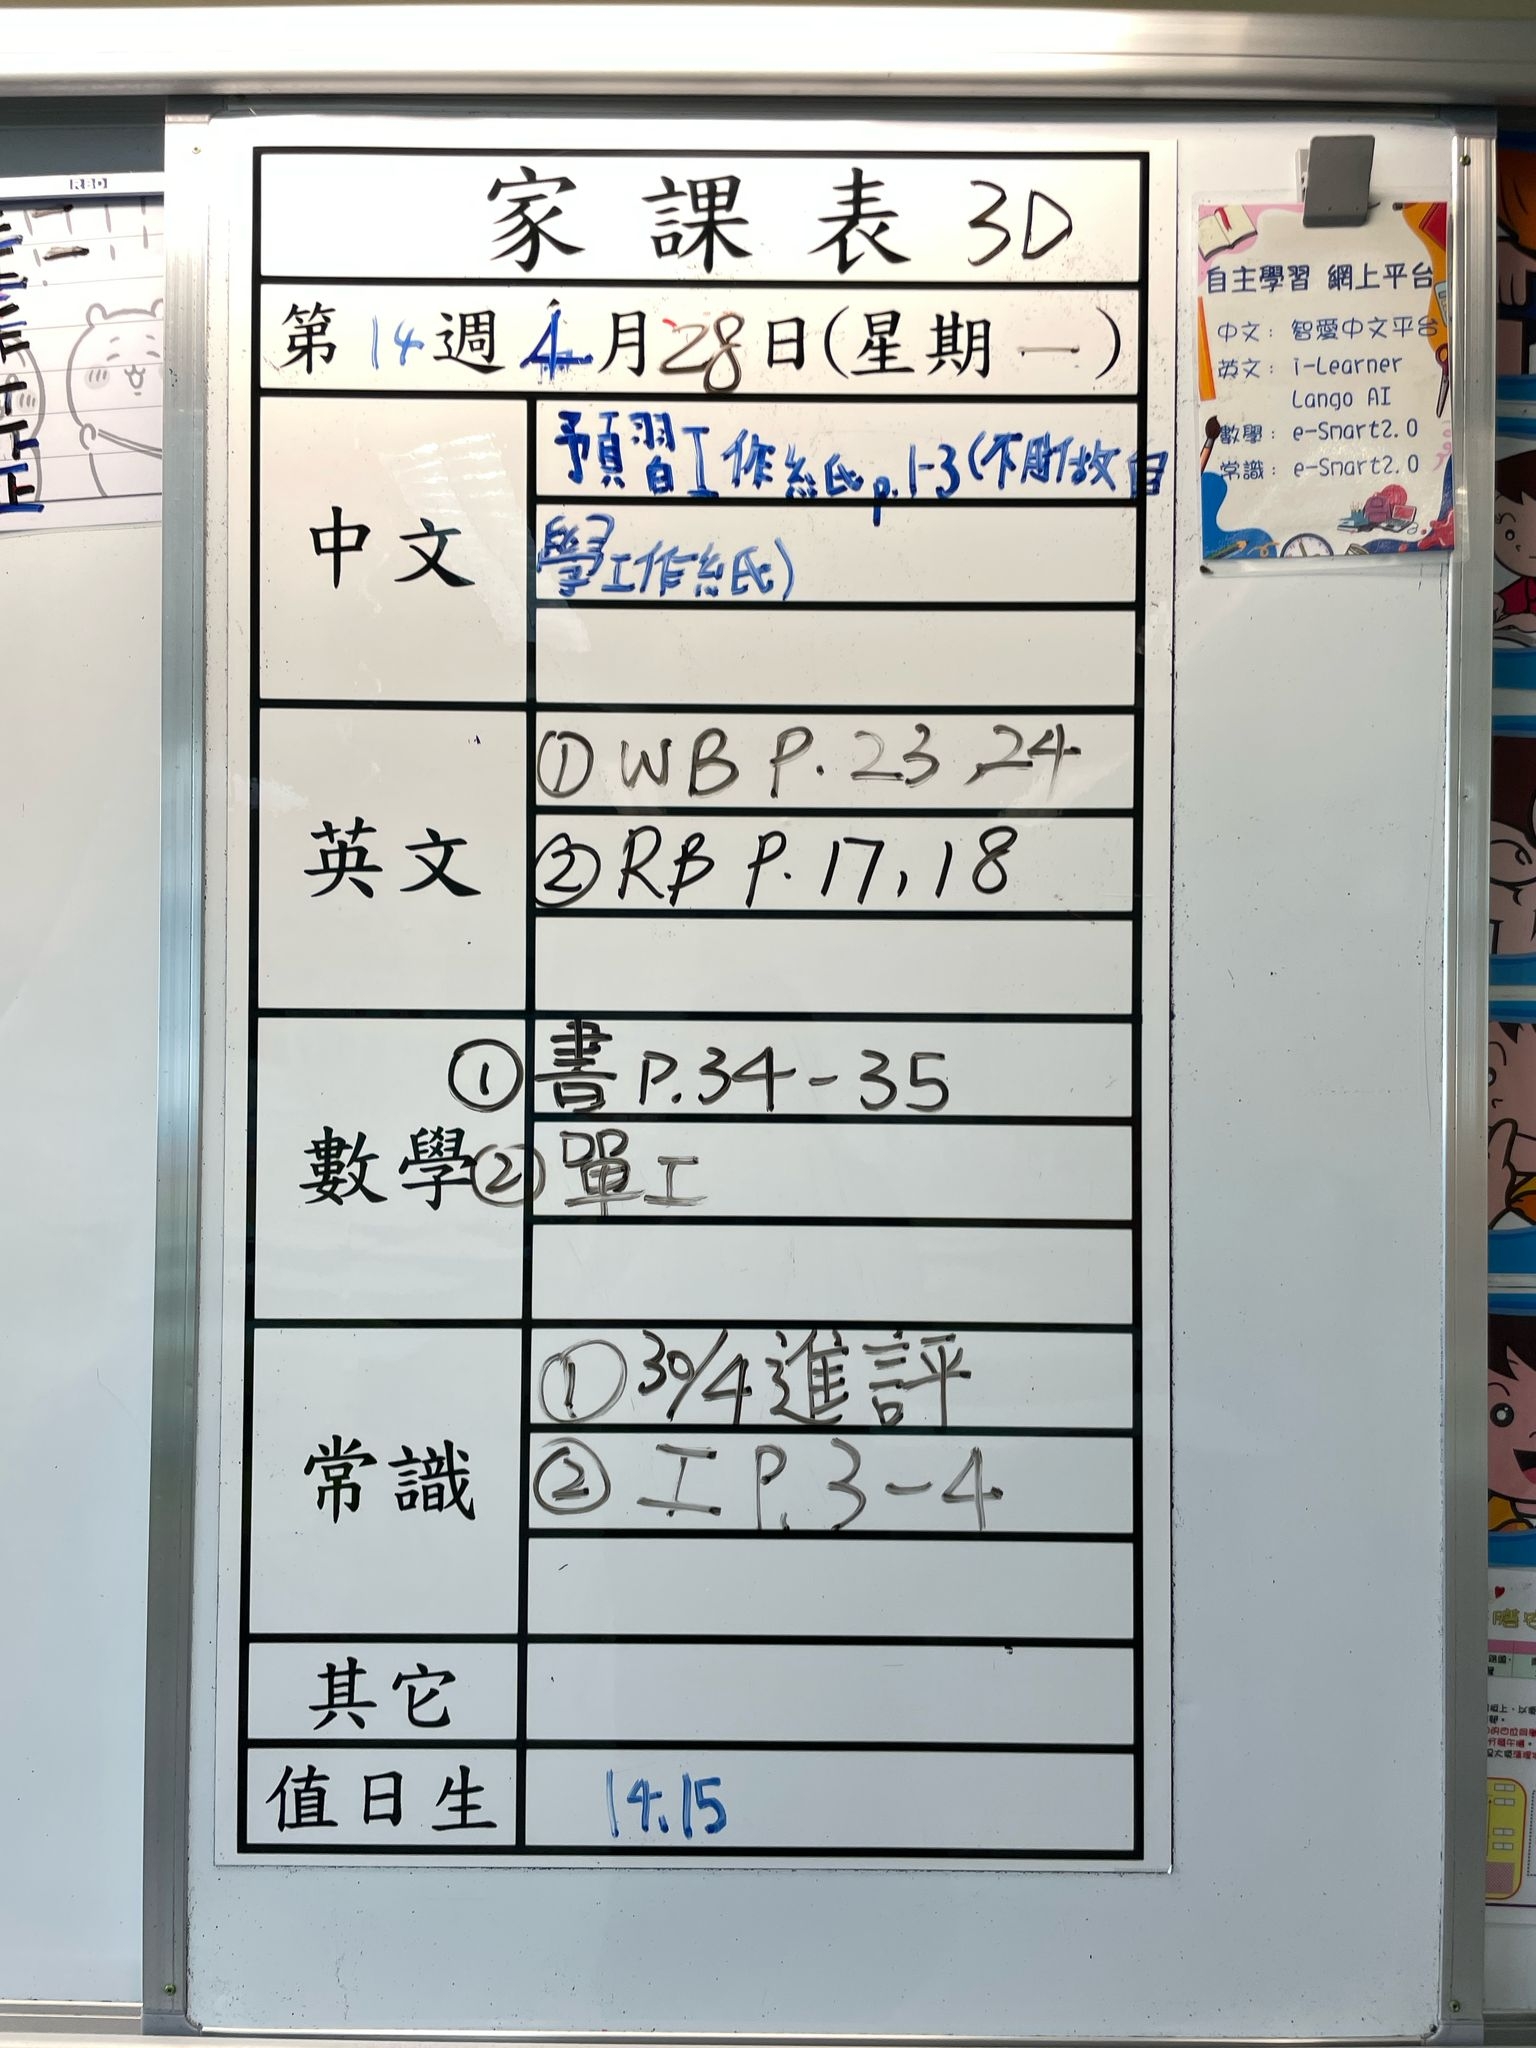 家課表 3D
第14週4月28日(星期一)
中文
預習工作紙p.1-3(不用做自
學工作紙)
英文
① WB P.23,24
② RB P.17,18
數學
① 書P.34-35
② 單工
常識
① 30/4進評
② 工P.3-4
其它
值日生
14.15
自主學習 網上平台
中文：智愛中文平台
英文：i-Learner
Lango AI
數學：e-Smart2.0
常識：e-Smart2.0